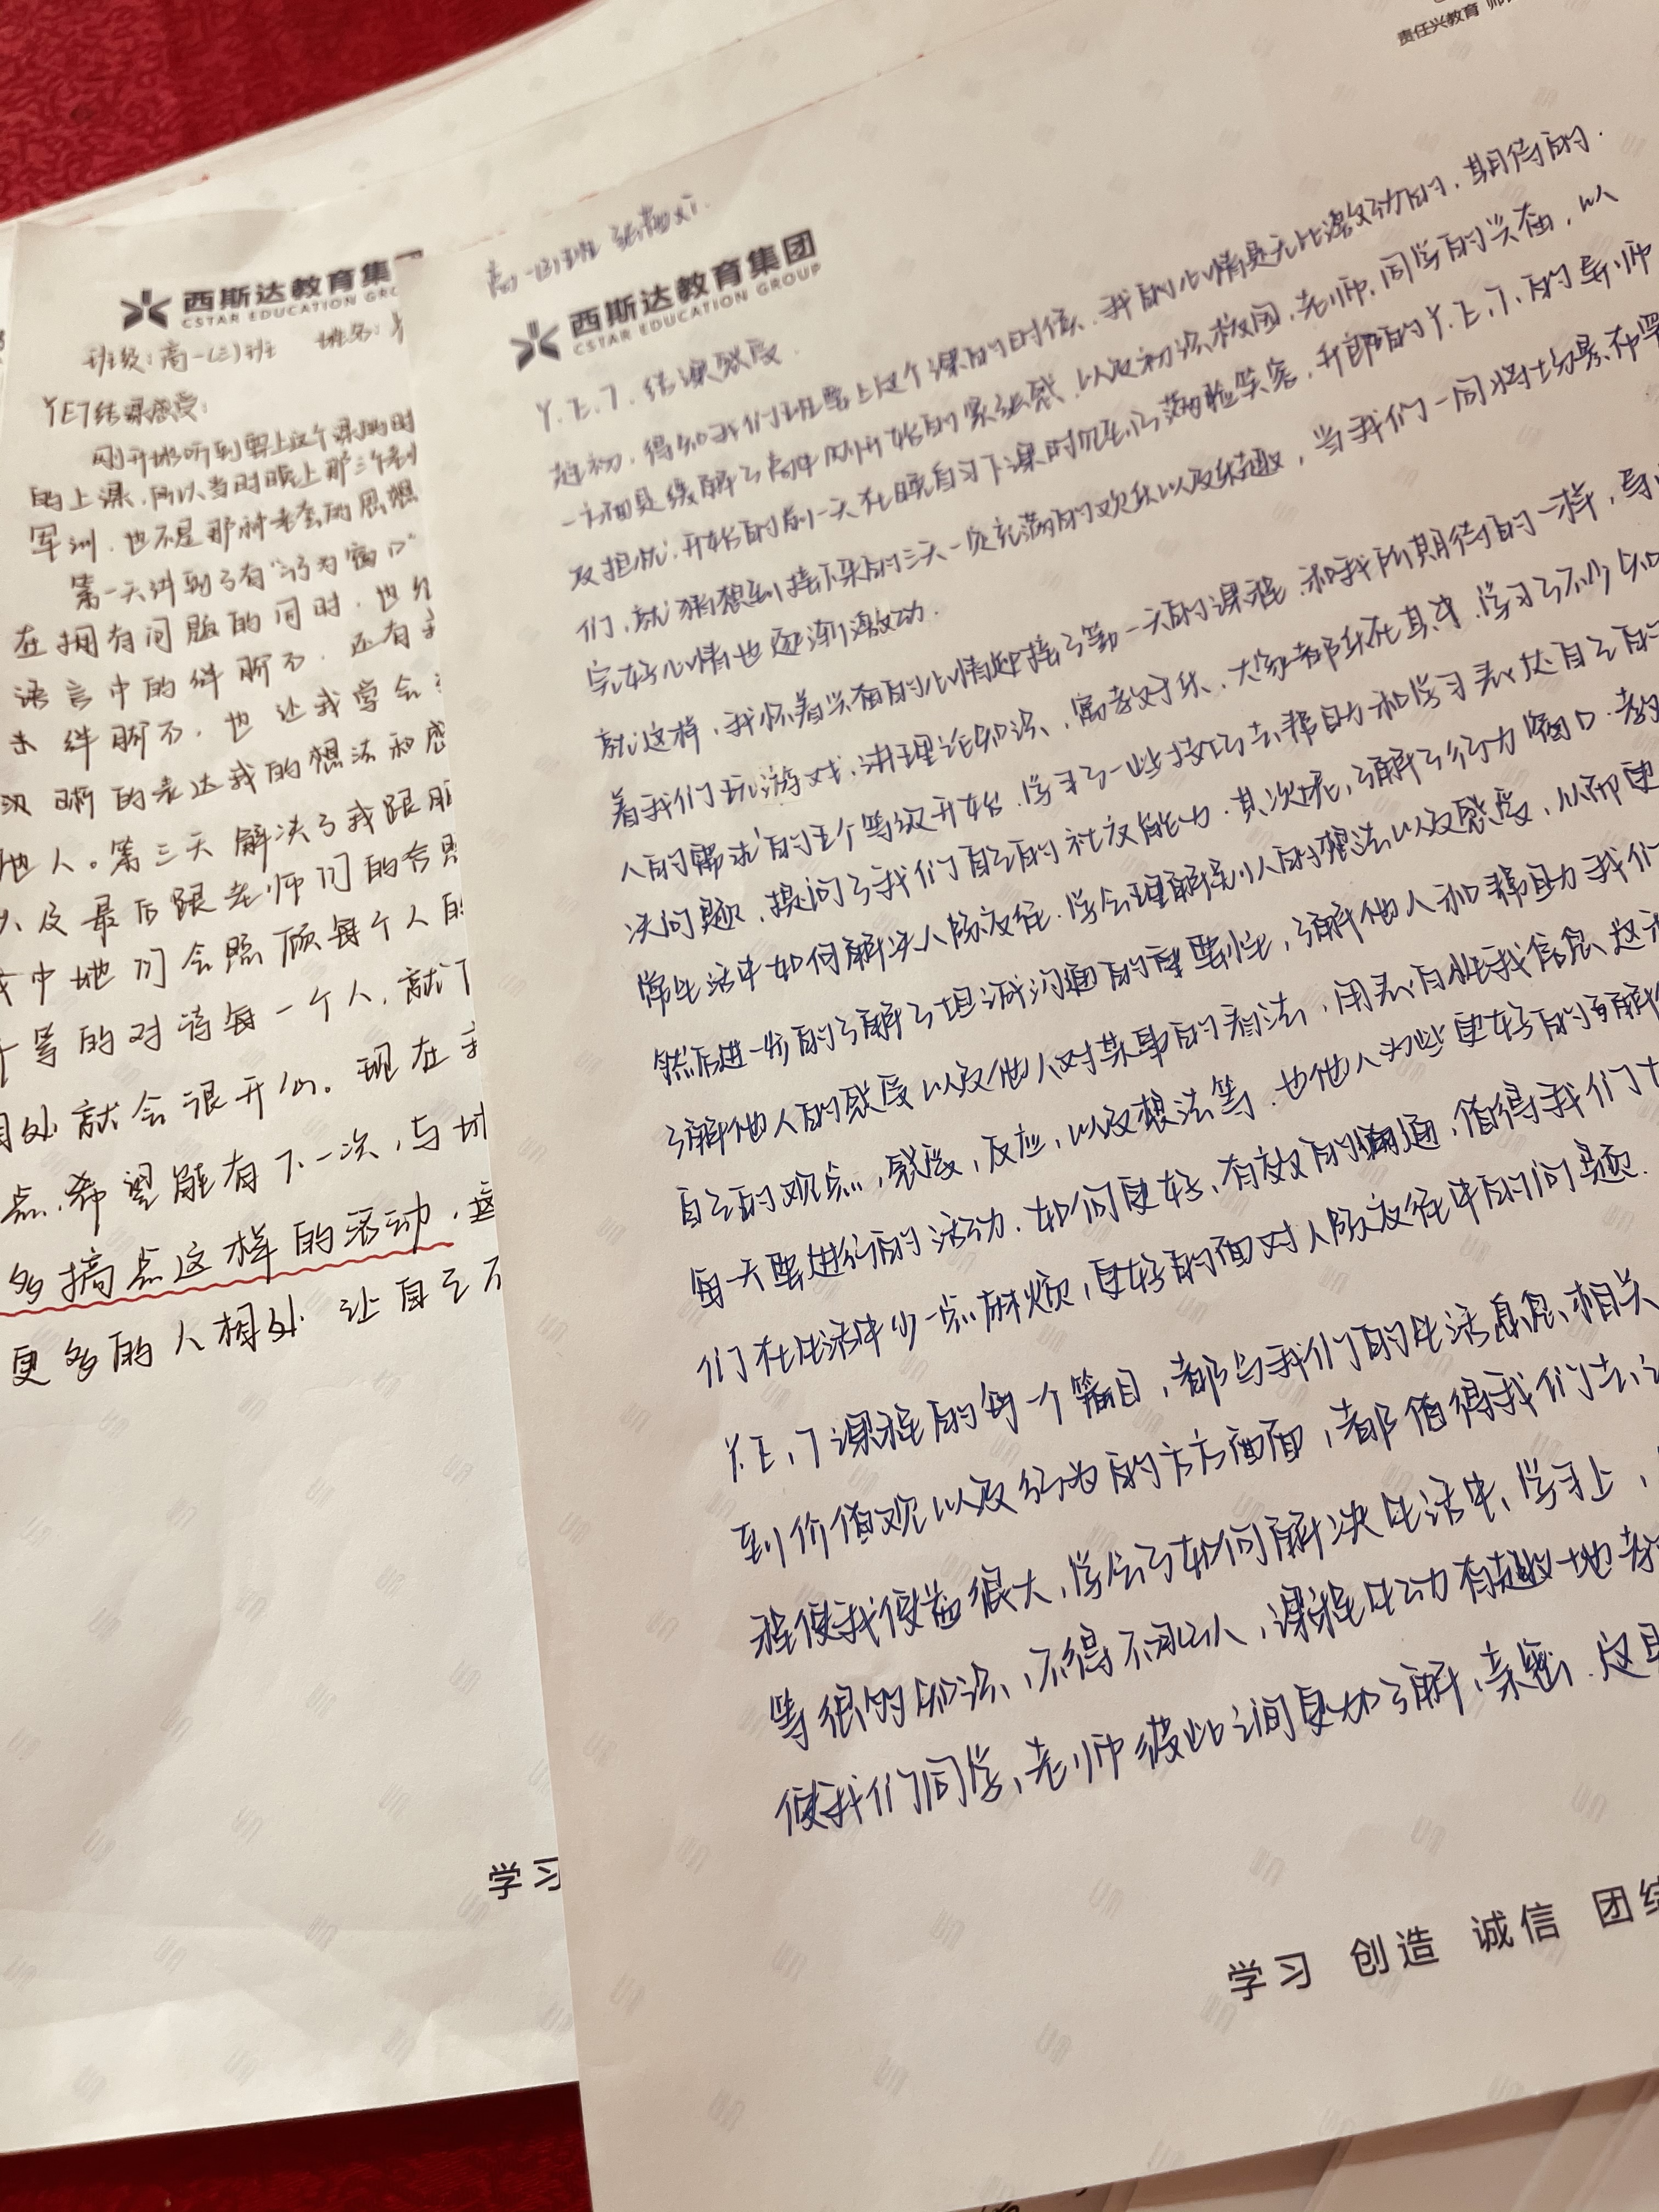 西斯达教育集
CSTAR EDUCATION GRO
班级：高一(三)班 姓名：
YET结课感受：
刚开始听到要上这个课的时
的上课，所以当时晚上那三个
军训，也不是那种老套的思想
第一天讲到了有"行为窗口"
在拥有问题的同时，也
语言中的绊脚石，还有
绊脚石，也让我学会
晰的表达我的想法和感
他人。第三天解决了我跟
以及最后跟老师们的合照
中她们会照顾每个人的
等的对待每一个人，就
相处就会很开心。现在我
点，希望能有下一次，与
多搞点这样的活动，
更多的人相处，让自己不
学习
责任兴教育 师
高一(3)班 张
西斯达教育集团
CSTAR EDUCATION GROUP
Y.E.T.结课感受
起初，得知我们班要上这个课的时候，我的心情是无比激动的，期待的.
一方面是缓解了高中刚开始的紧张感，以及初涂校园，老师，同学的兴奋，以
及担忧.开始的前一天在晚自习下课时见到了满脸笑容，开朗的Y.E.T.的导师
们，就猜想到接下来的三天一定充满的欢乐以及乐趣，当我们一同将场景布置
完好心情也逐渐激动.
就这样，我怀着兴奋的心情迎接了第一天的课程.和我所期待的一样，导
着我们玩游戏、讲理论知识、寓教于乐、大家都乐在其中，学习了不少知
人的需求的五个等级开始，学习了一些技巧去帮助和学习表达自己的
决问题，提问了我们自己的社交能力.其次呢，了解了行为窗口.教
常生活中如何解决人际交往.学会理解别人的想法以及感受，从而更
然后进一步的了解了坦诚沟通的重要性，了解他人和帮助我们
了解他人的感受以及他人对某事的看法，用表白性我信息、这
自己的观点，感受，反应，以及想法等.也他人为些更好的了解
每一天要进行的活动.如何更好、有效的沟通，值得我们
们在生活中少一点麻烦，更好的面对人际交往中的问题.
Y.E.T课程的每一个篇目，都与我们的生活息息相关
到价值观以及行为的方方面面，都值得我们去
程使我受益很大，学会了如何解决生活中、学习上，
等很多知识、不得不承认，课程生动有趣地
使我们同学、老师彼此之间更加了解，亲密.这
学习 创造 诚信 团结